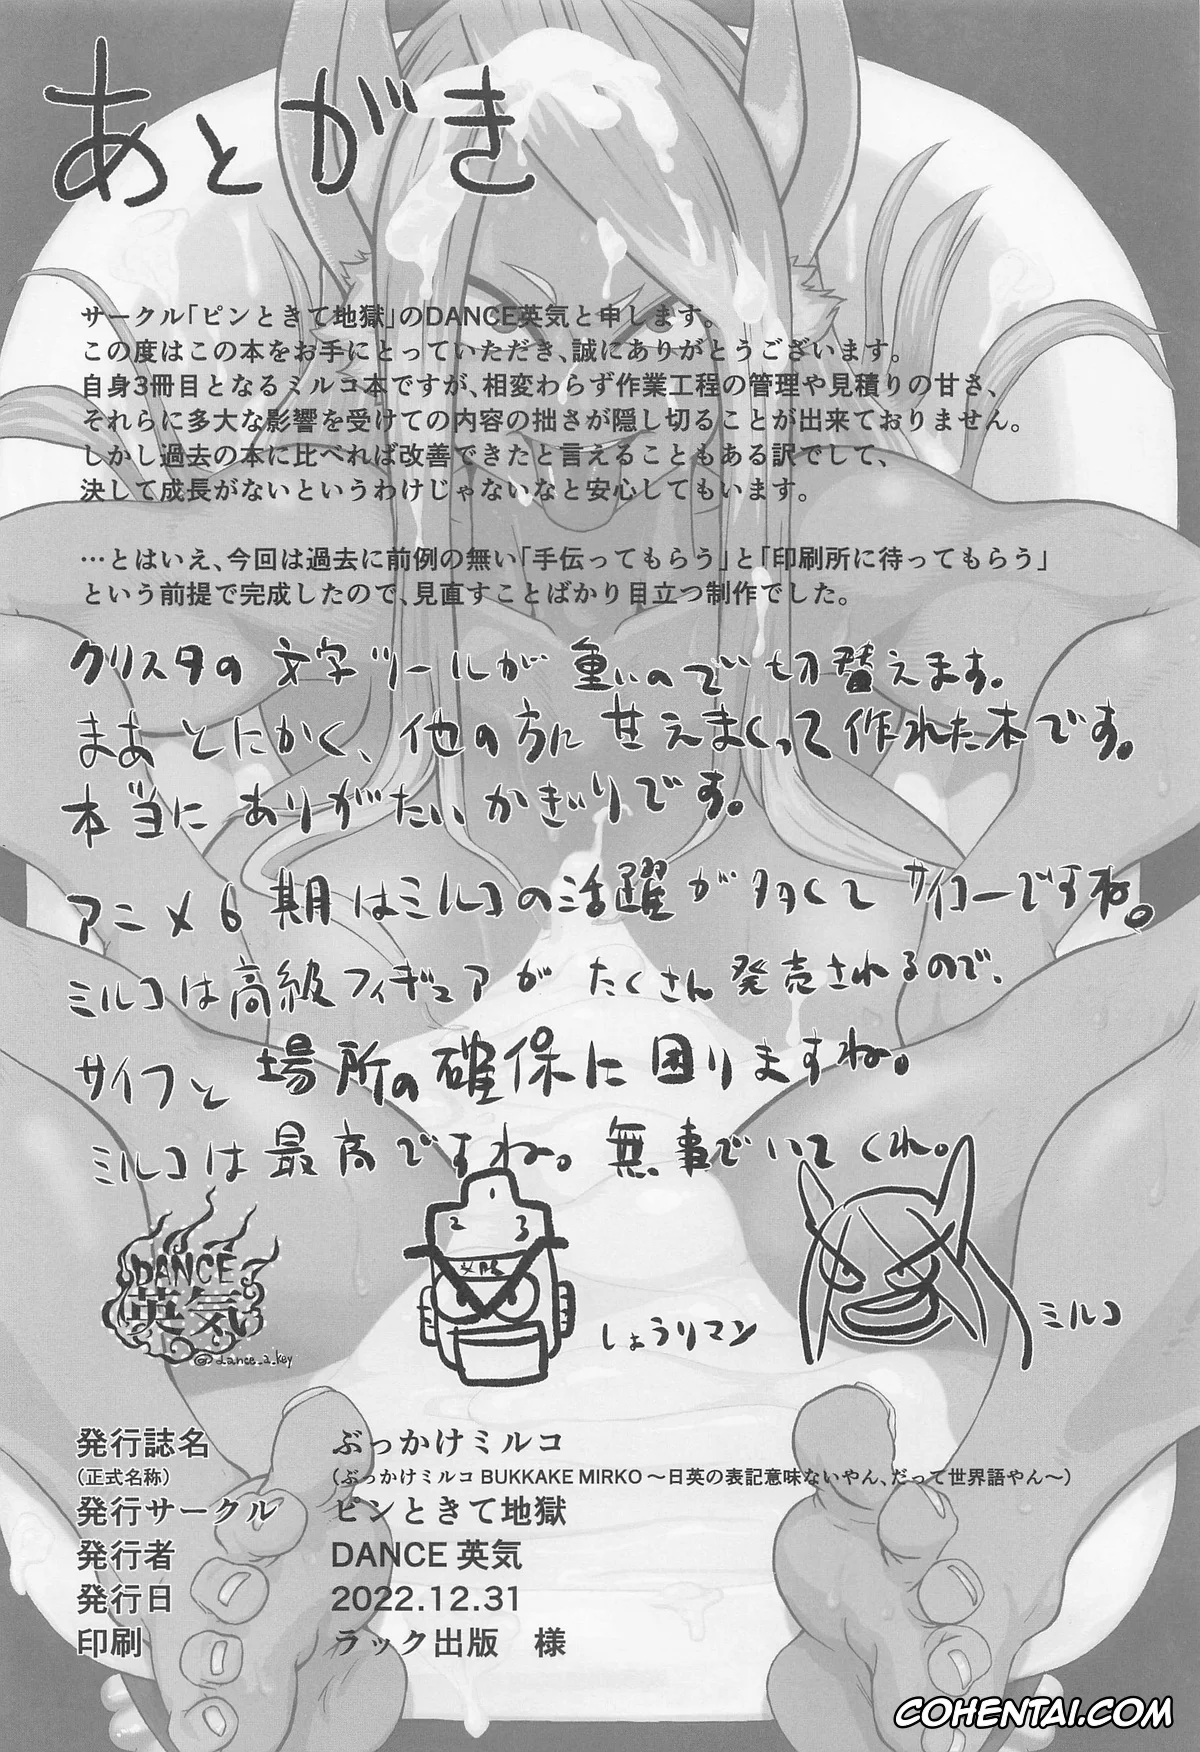 あとがき
サークル「ピンときて地獄」のDANCE英気と申します。
この度はこの本をお手にとっていただき、誠にありがとうございます。
自身3冊目となるミルコ本ですが、相変わらず作業工程の管理や見積りの甘さ、
それらに多大な影響を受けての内容の拙さが隠し切ることが出来ておりません。
しかし過去の本に比べれば改善できたと言えることもある訳でして、
決して成長がないというわけじゃないなと安心してもいます。
…とはいえ、今回は過去に前例の無い「手伝ってもらう」と「印刷所に待ってもらう」
という前提で完成したので、見直すことばかり目立つ制作でした。
クリスタの文字ツールが重いので切替えます。
まあとにかく、他の方に甘えまくって作れた本です。
本当にありがたいかぎりです。
アニメ6期はミルコの活躍が多くてサイコーですね。
ミルコは高級フィギュアがたくさん発売されるので、
サイフと場所の確保に困りますね。
ミルコは最高ですね。無事でいてくれ。
DANCE
英気
@dance_a_key
1
2 3
しょうりマン
ミルコ
発行誌名 ぶっかけミルコ
(正式名称) (ぶっかけミルコ BUKKAKE MIRKO～日英の表記意味ないやん、だって世界語やん～)
発行サークル ピンときて地獄
発行者 DANCE 英気
発行日 2022.12.31
印刷 ラック出版 様
COHENTAI.COM